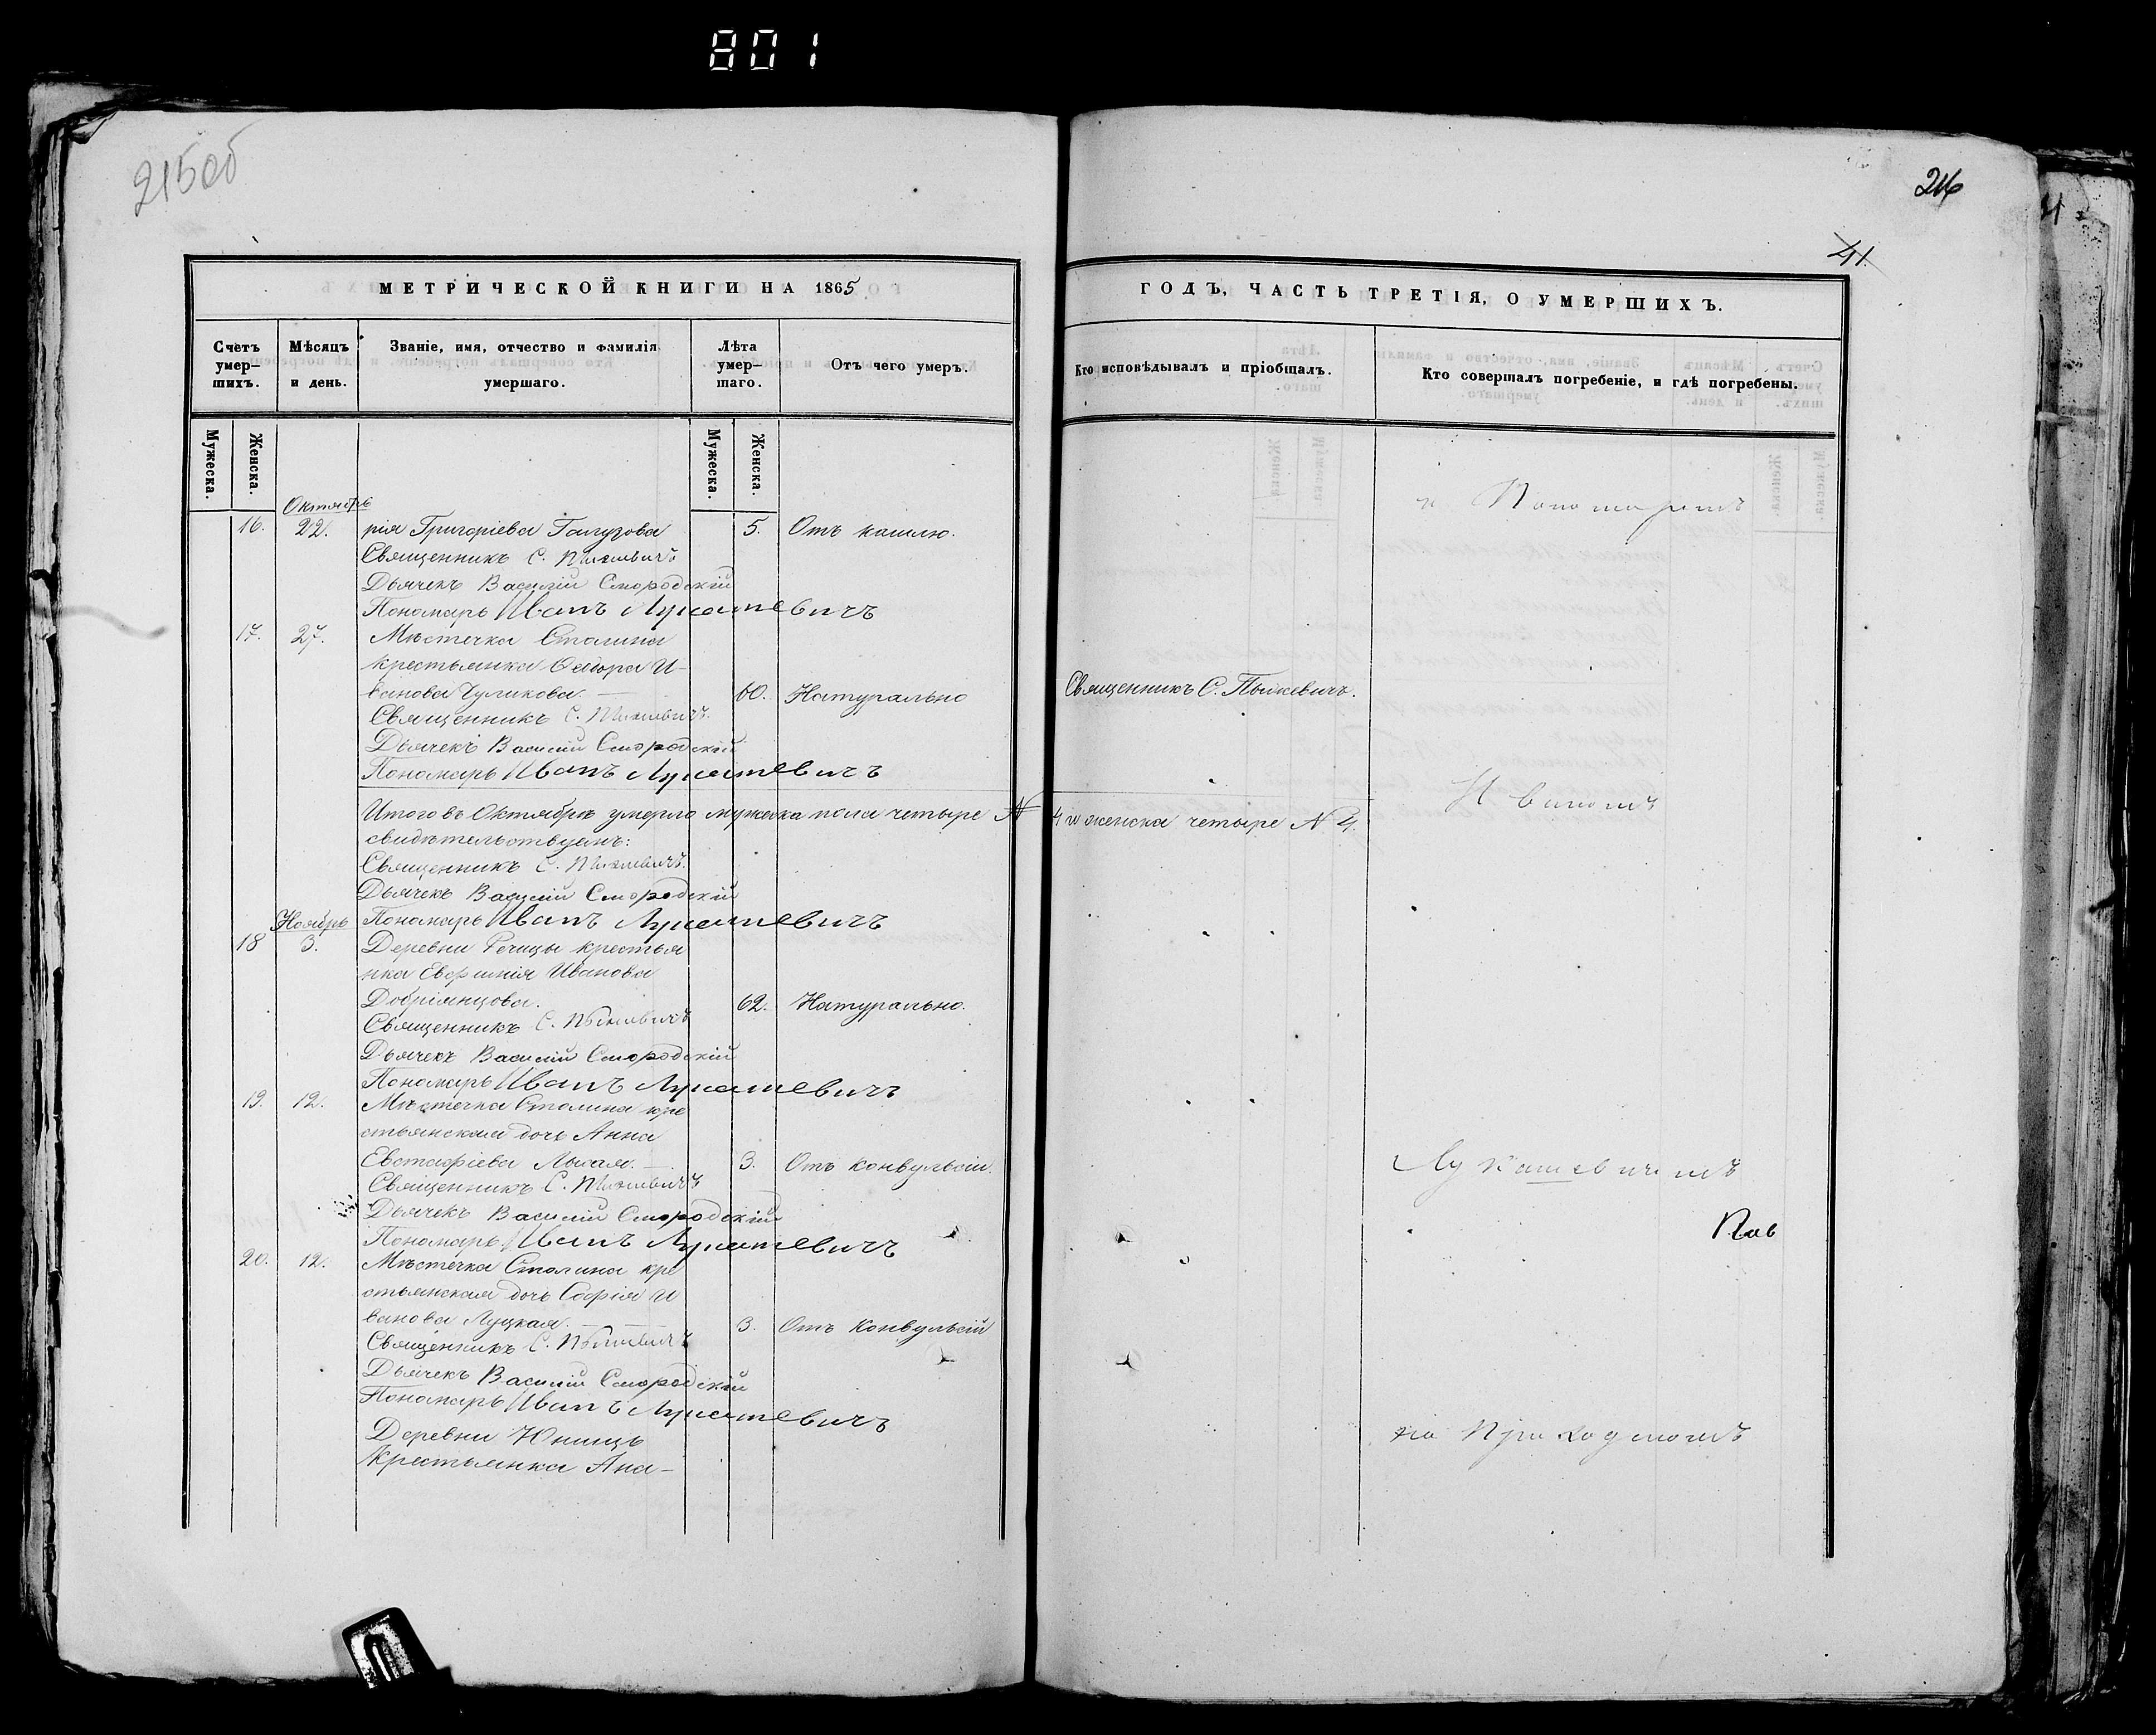 801
215об
216
41
МЕТРИЧЕСКОЙ КНИГИ НА 1865
Счетъ умер-шихъ.
Мѣсяцъ и день.
Званіе, имя, отчество и фамилія умершаго.
Лѣта умер-шаго.
Отъ чего умеръ.
Мужеска.
Женска.
Мужеска.
Женска.
Октябрь
16. 22. рія Григоріева Галузова 5. Отъ кашлю.
Священникъ С. Пыжевичъ
Дьячекъ Василій Смородскій
Пономарь Иванъ Лукашевичъ
17. 27. Мѣстечка Столина
крестьянка Ѳедора И-
ванова Чуликова. 60. Натурально
Священникъ С. Пыжевичъ.
Дьячекъ Василій Смородскій
Пономарь Иванъ Лукашевичъ
Итого въ Октябрѣ умерло мужеска пола четыре №
свидѣтельствуемъ:
Священникъ С. Пыжевичъ.
Дьячекъ Василій Смородскій
Ноябрь Пономарь Иванъ Лукашевичъ
18 3. Деревни Речицы крестья
нка Евфимія Иванова
Добріянцова. 62. Натурально.
Священникъ С. Пыжевичъ
Дьячекъ Василій Смородскій
Пономарь Иванъ Лукашевичъ
19. 12. Мѣстечка Столина кре
стьянская дочь Анна
Евстафіева Лысая. 3. Отъ конвульсіи.
Священникъ С. Пыжевичъ
Дьячекъ Василій Смородскій
Пономарь Иванъ Лукашевичъ
20. 12. Мѣстечка Столина кре
стьянская дочь Софія И
ванова Луцкая. 3. Отъ Конвульсій
Священникъ С. Пыжевичъ
Дьячекъ Василій Смородскій
Пономарь Иванъ Лукашевичъ
Деревни
Крестьянка Ана-
ГОДЪ, ЧАСТЬ ТРЕТІЯ, О УМЕРШИХЪ.
Кто исповѣдывалъ и пріобщалъ.
Кто совершалъ погребеніе, и гдѣ погребены.
и Пономаремъ
Священникъ С. Пыжевичъ.
Иваномъ
4 и женска четыре № 4.
Лукашевичемъ
на Приходскомъ